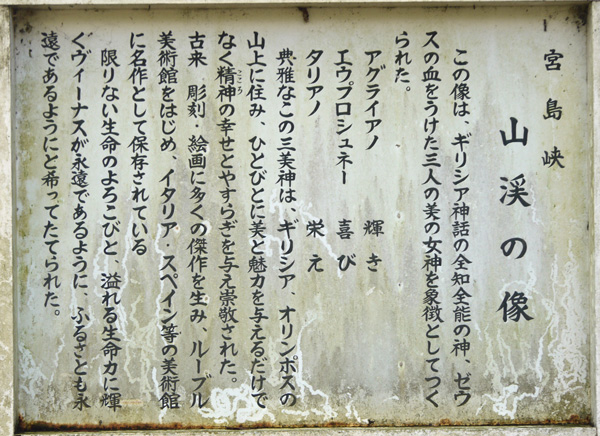 宮島峡
山渓の像
この像は、ギリシア神話の全知全能の神、ゼウ
スの血をうけた三人の美の女神を象徴としてつく
られた。
アグライアノ 輝き
エウプロシュネー 喜び
タリアノ 栄え
典雅なこの三美神は、ギリシア、オリンポスの
山上に住み、ひとびとに美と魅力を与えるだけで
なく精神の幸せとやすらぎを与え崇敬された。
こころ
古来 彫刻・絵画に多くの傑作を生み、ルーブル
美術館をはじめ、イタリア・スペイン等の美術館
に名作として保存されている
限りない生命のよろこびと、溢れる生命力に輝
くヴィーナスが永遠であるように、ふるさとも永
遠であるようにと希ってたてられた。